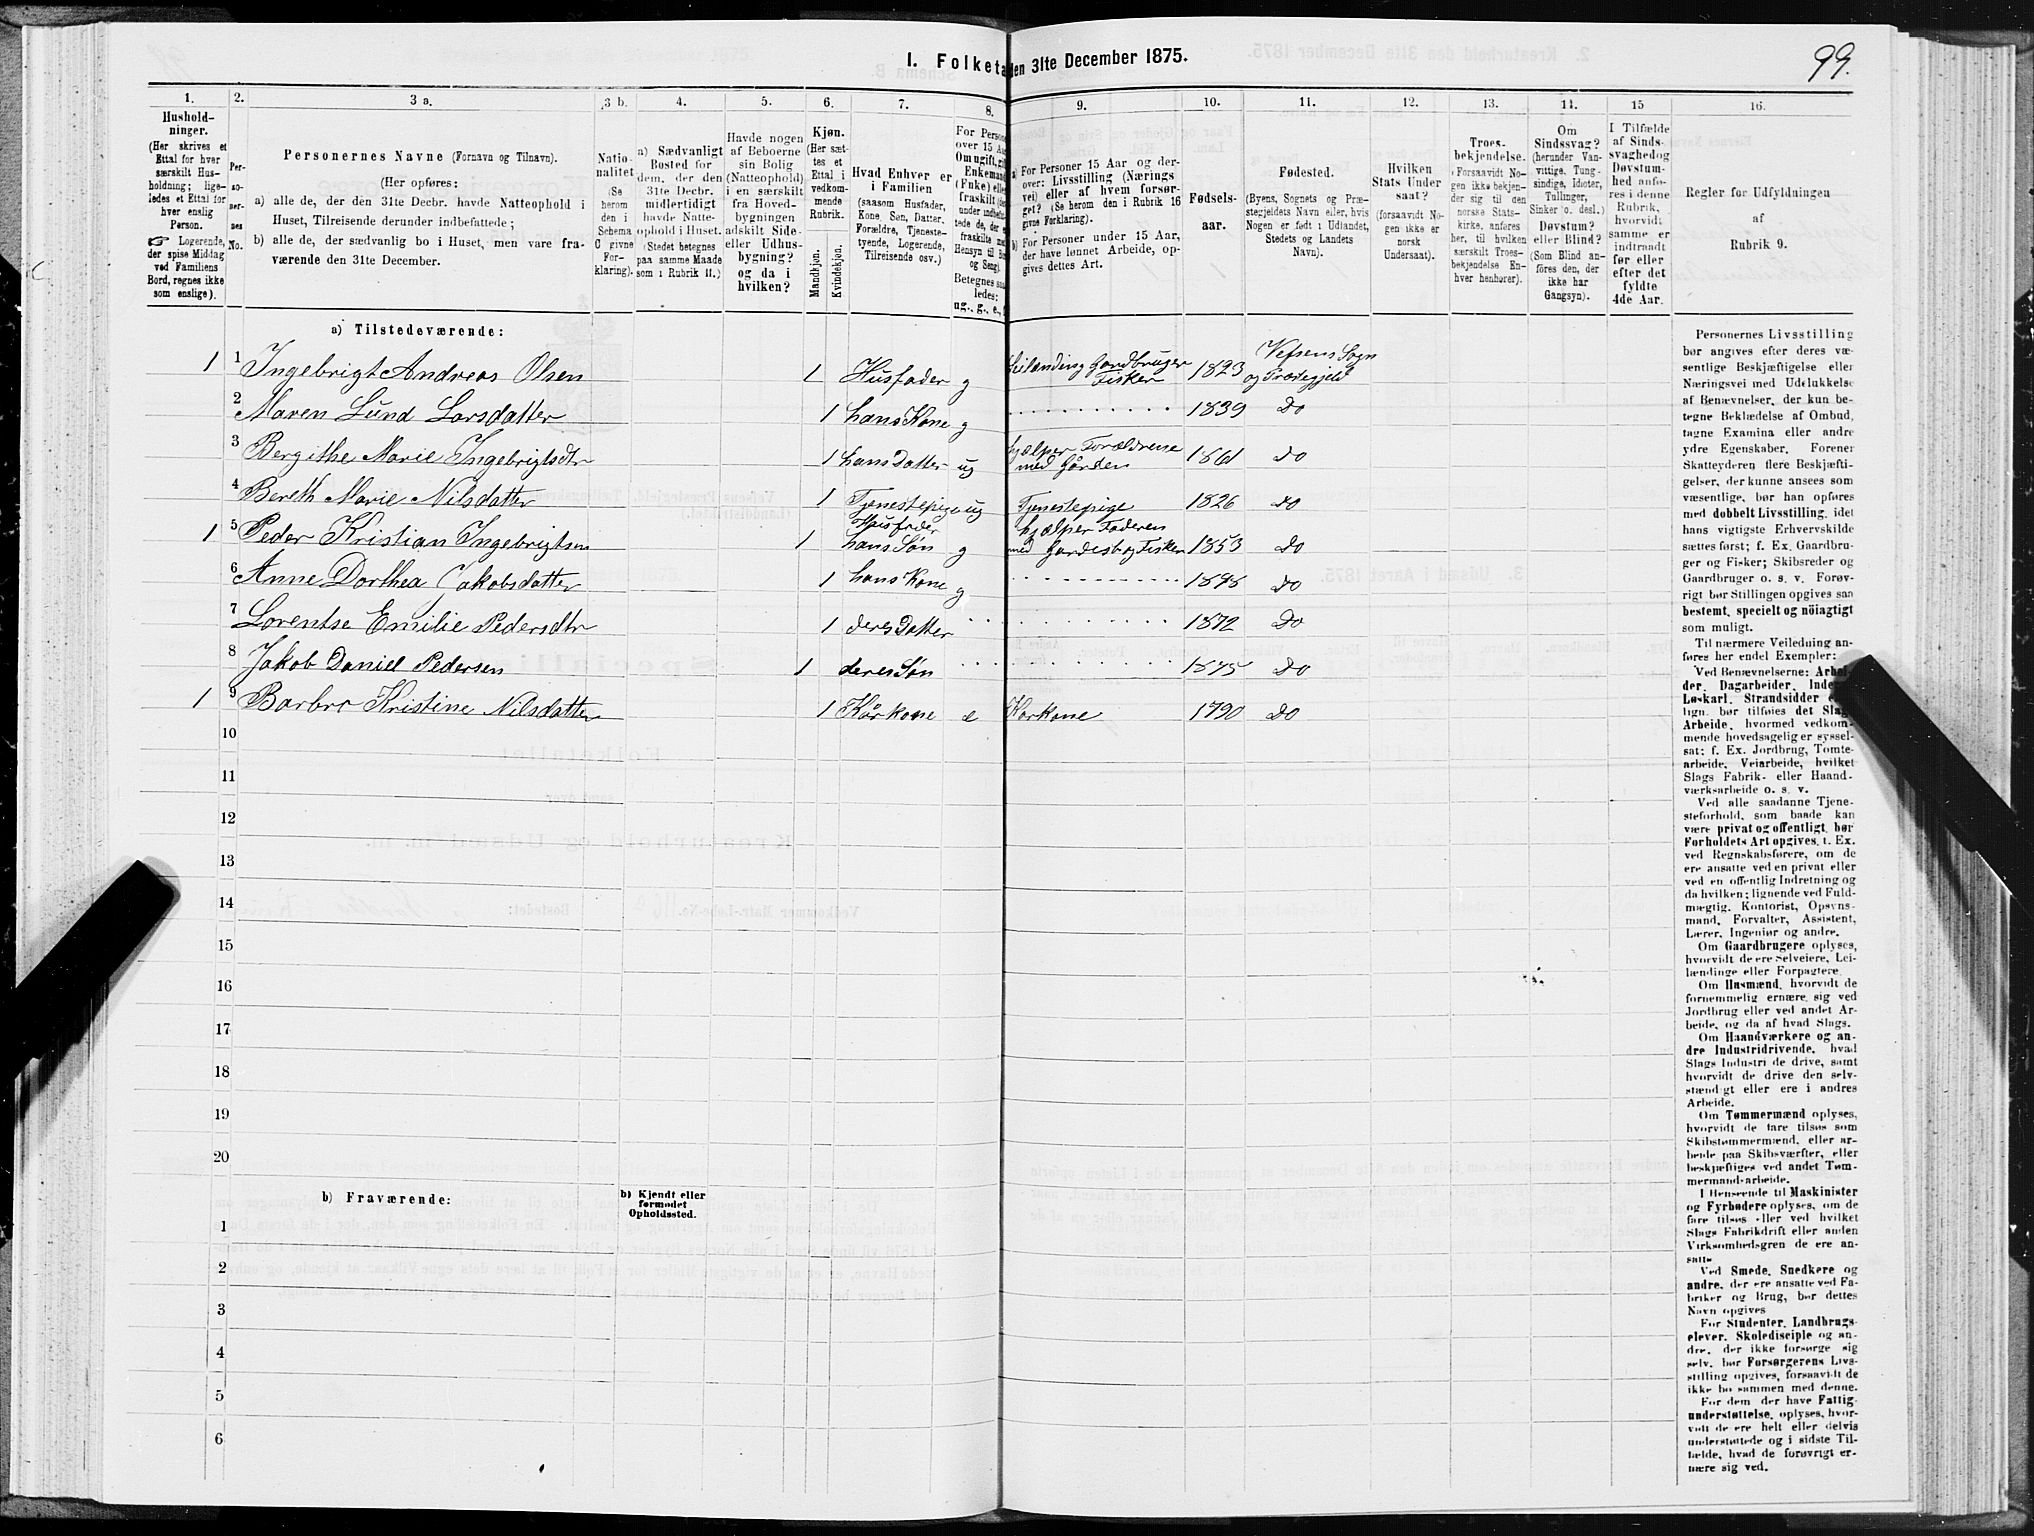 99.
I. Folketa den 31te December 1875.
1. 2. 3 a. 3 b. 4. 5. 6. 7. 8. 9. 10. 11. 12. 13. 14. 15 16.
Hushold-
ninger.
(Her skrives et
Ettal for hver
særskilt Hus-
holdning; lige-
ledes et Ettal for
hver enslig
Person.
☞ Logerende,
der spise Middag
ved Familiens
Bord, regnes ikke
som enslige).
Per-
so-
ner-
nes
No.
Personernes Navne (Fornavn og Tilnavn).
(Her opføres:
a) alle de, der den 31te Decbr. havde Natteophold i
Huset, Tilreisende derunder indbefattede;
b) alle de, der sædvanlig bo i Huset, men vare fra-
værende den 31te December.
Natio-
nalitet
(Se
herom
den i
Schema
C givne
For-
klaring).
a) Sædvanligt
Bosted for
dem, der den
31te Decbr.
midlertidigt
havde Natte-
ophold i Huset.
(Stedet betegnes
paa samme Maade
som i Rubrik 11.)
Havde nogen
af Beboerne
sin Bolig
(Natteophold)
i en særskilt
fra Hoved-
bygningen
adskilt Side-
eller Udhus-
bygning?
og da i
hvilken?
Kjøn.
(Her sæt-
tes et
Ettal i
vedkom-
mende
Rubrik.
Mandkjøn.
Kvindekjøn.
Hvad Enhver er
i Familien
(saasom Husfader,
Kone, Søn, Datter,
Forældre, Tjeneste-
tyende, Logerende,
Tilreisende osv.)
For Person
over 15 Aar
Om ugift, gift
Enkemand
(Enke) eller
fraskilt
Betegnes saa-
ledes:
ug., g., e., f
a) For Personer 15 Aar og der-
over: Livsstilling (Nærings
vei) eller af hvem forsør-
get? (Se herom den i Rubrik 16
givne Forklaring).
b) For Personer under 15 Aar,
der have lønnet Arbeide, op-
gives dettes Art.
Fødsels-
aar.
Fødested.
(Byens, Sognets og Præ-
stegjeldets Navn eller, hvis
Nogen er født i Udlandet,
Stedets og Landets
Navn).
Hvilken
Stats Under
saat?
(forsaavidt No-
gen ikke er
norsk
Undersaat).
Troes-
bekjendelse.
(Forsaavidt No-
gen ikke bekjen-
der sig til den
norske Stats-
kirke, anføres
her, til hvilken
særskilt Troes-
bekjendelse En-
hver henhører).
Om
Sindssvag?
(herunder Van-
vittige, Tung-
sindige, Idioter,
Tullinger,
Sinker o. desl.)
Døvstum?
eller Blind?
(Som Blind an-
føres den, der
ikke har
Gangsyn).
I Tilfælde
af Sinds-
svaghed og
Døvstum-
hed anfø-
res i denne
Rubrik,
hvorvidt
samme er
indtraadt
før eller
efter det
fyldte
4de Aar.
Regler for Udfyldningen
af
Rubrik 9.
a) Tilstedeværende:
1 1 Ingebrigt Andreas Olsen 1 Husfader g Leilænding Gardbruger Fisker 1823 Vefsens Sogn og Prestegjeld
2 Maren Lund Larsdatter 1 hans Kone g 1839 Do
3 Bergithe Marie Ingebrigtsdtr 1 hans Datter ug hjælper Forældrene med Gården 1861 Do
4 Bereth Marie Nilsdatter 1 Tjenestepige ug Tjenestepige 1826 Do
1 5 Peder Kristian Ingebrigtsen 1 Husfader hans Søn g hjælper Faderen med Gardsb og Fisker 1853 Do
6 Anne Dorthea Jakobsdatter 1 hans Kone g Do
7 Lorentse Emilie Pedersdtr 1 deres Datter 1872 Do
8 Jakob Daniel Pedersen 1 deres Søn 1875 Do
1 9 Barbro Kristine Nilsdatter 1 Kårkone e Karkone 1790 Do
10
11
12
13
14
15
16
17
18
19
20
b) Fraværende:
b) Kjendt eller
formodet
Opholdssted.
1
2
3
4
5
6
Personernes Livsstilling
bør angives efter deres væ-
sentlige Beskjæftigelse eller
Næringsvei med Udelukkelse
af Benævnelser, der kun be-
tegne Beklædelse af Ombud,
tagne Examina eller andre
ydre Egenskaber. Forener
Skatteyderen flere Beskjæfti-
gelser, der kunne ansees som
væsentlige, bør han opføres
med dobbelt Livsstilling, idet
hans vigtigste Erhvervskilde
sættes først; f. Ex. Gaardbru-
ger og Fisker; Skibsreder og
Gaardbruger o. s. v. Forøv-
rigt bør Stillingen opgives saa
bestemt, specielt og nöiagtigt
som muligt.
Til nærmere Veiledning an-
føres her endel Exempler:
Ved Benævnelserne: Arbei-
der, Dagarbeider, Inde
Løskarl, Strandsidder
lign. bør tilføies det Slag
Arbeide, hvormed vedkom-
mende hovedsagelig er syssel-
sat; f. Ex. Jordbrug, Tomte-
arbeide, Veiarbeide, hvilket
Slags Fabrik- eller Haand-
værksarbeide o. s. v.
Ved alle saadanne Tjene-
steforhold, som baade kan
være privat og offentligt, bør
Forholdets Art opgives, t. Ex.
ved Regnskabsførere, om de
ere ansatte ved en privat eller
ved en offentlig Indretning og
da hvilken; lignende ved Fuld-
mægtig, Kontorist, Opsyns-
mand, Forvalter, Assistent,
Lærer, Ingeniør og andre.
Om Gaardbrugere oplyses,
hvorvidt de ere Selveiere, Lei-
lændinge eller Forpagtere.
Om Husmænd, hvorvidt de
fornemmelig ernære sig ved
Jordbrug eller ved andet Ar-
beide, og da af hvad Slags.
Om Haandværkere og an-
dre Industridrivende, hvad
Slags Industri de drive, samt
hvorvidt de drive den selv-
stændigt eller ere i andres
Arbeide.
Om Tømmermænd oplyses,
hvorvidt de fare tilsøs som
Skibstømmermænd, eller ar-
beide paa Skibsværfter, eller
beskjæftiges ved andet Tøm-
mermandsarbeide.
I Henseende til Maskinister
og Fyrbødere oplyses, om de
fare tilsøs eller ved hvilket
Slags Fabrikdrift eller anden
Virksomhedsgren de ere an-
satte
Ved Smede, Snedkere og
andre, der ere ansatte ved Fa-
briker og Brug, bør dettes
Navn opgives
For Studenter, Landbrugs-
elever, Skoledisciple og an-
dre, der ikke forsørge sig
selv, bør Forsørgerens Livs-
stilling opgives, forsaavidt de
ikke bo sammen med denne.
For dem der have Fattig-
understøttelse, oplyses, hvor-
vidt de ere helt eller delvis
understøttede og i sidste Til-
fælde, hvad de forøvrigt er-
nære sig ved.